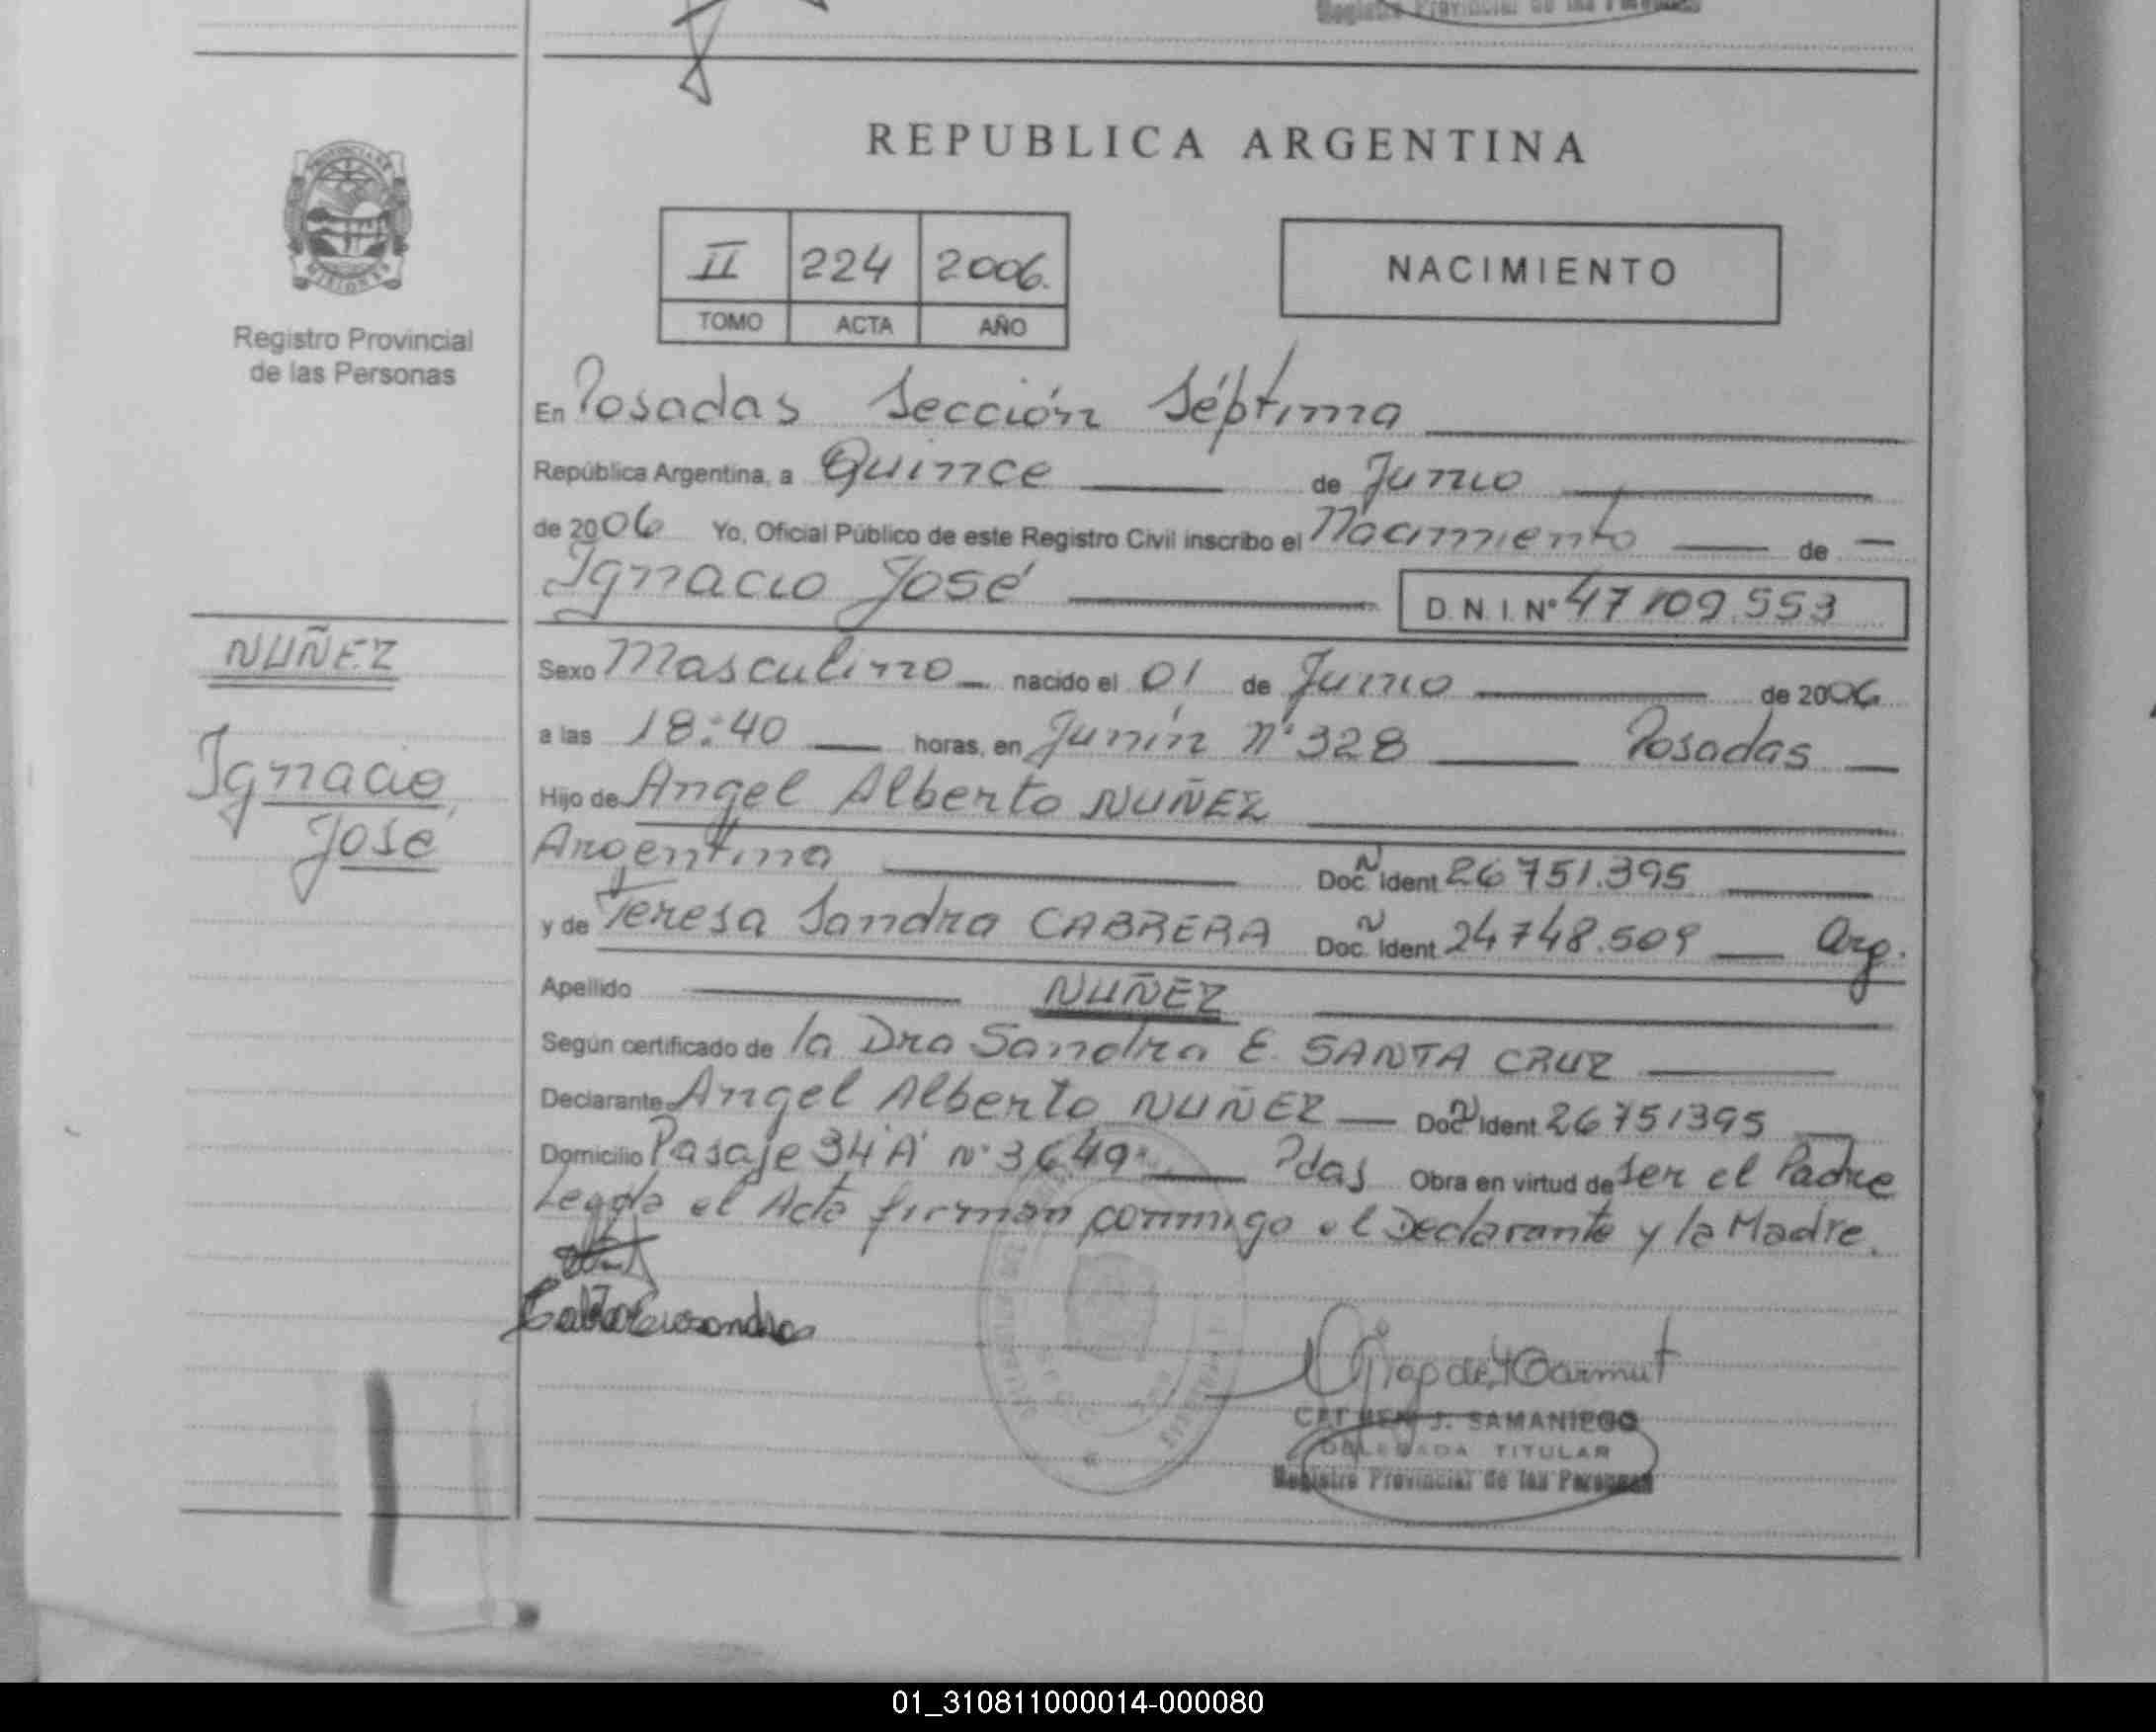 Registro Provincial de las Personas
REPUBLICA ARGENTINA
II 224 2006.
TOMO ACTA AÑO
NACIMIENTO
Registro Provincial
de las Personas
En Posadas Sección Séptima
República Argentina, a Quince de Junio
de 2006 Yo, Oficial Público de este Registro Civil inscribo el Nacimiento de
Ignacio José D.N.I. Nº 47109.553
NUÑEZ
Ignacio
José
Sexo Masculino nacido el 01 de Junio de 2006
a las 18:40 horas, en Junín Nº 328 Posadas
Hijo de Angel Alberto NUÑEZ
Argentina Doc. Ident 26751.395
y de Teresa Sandra CABRERA Doc. Ident 24748.509 Arg.
Apellido NUÑEZ
Según certificado de la Dra Sandra E. SANTA CRUZ
Declarante Angel Alberto NUÑEZ Doc. Ident 26751395
Domicilio Pasaje 34 "A" Nº 3649 Pdas Obra en virtud de ser el Padre
Leída el Acta firman conmigo el Declarante y la Madre.
CARMEN J. SAMANIEGO
DELEGADA TITULAR
Registro Provincial de las Personas
01_310811000014-000080